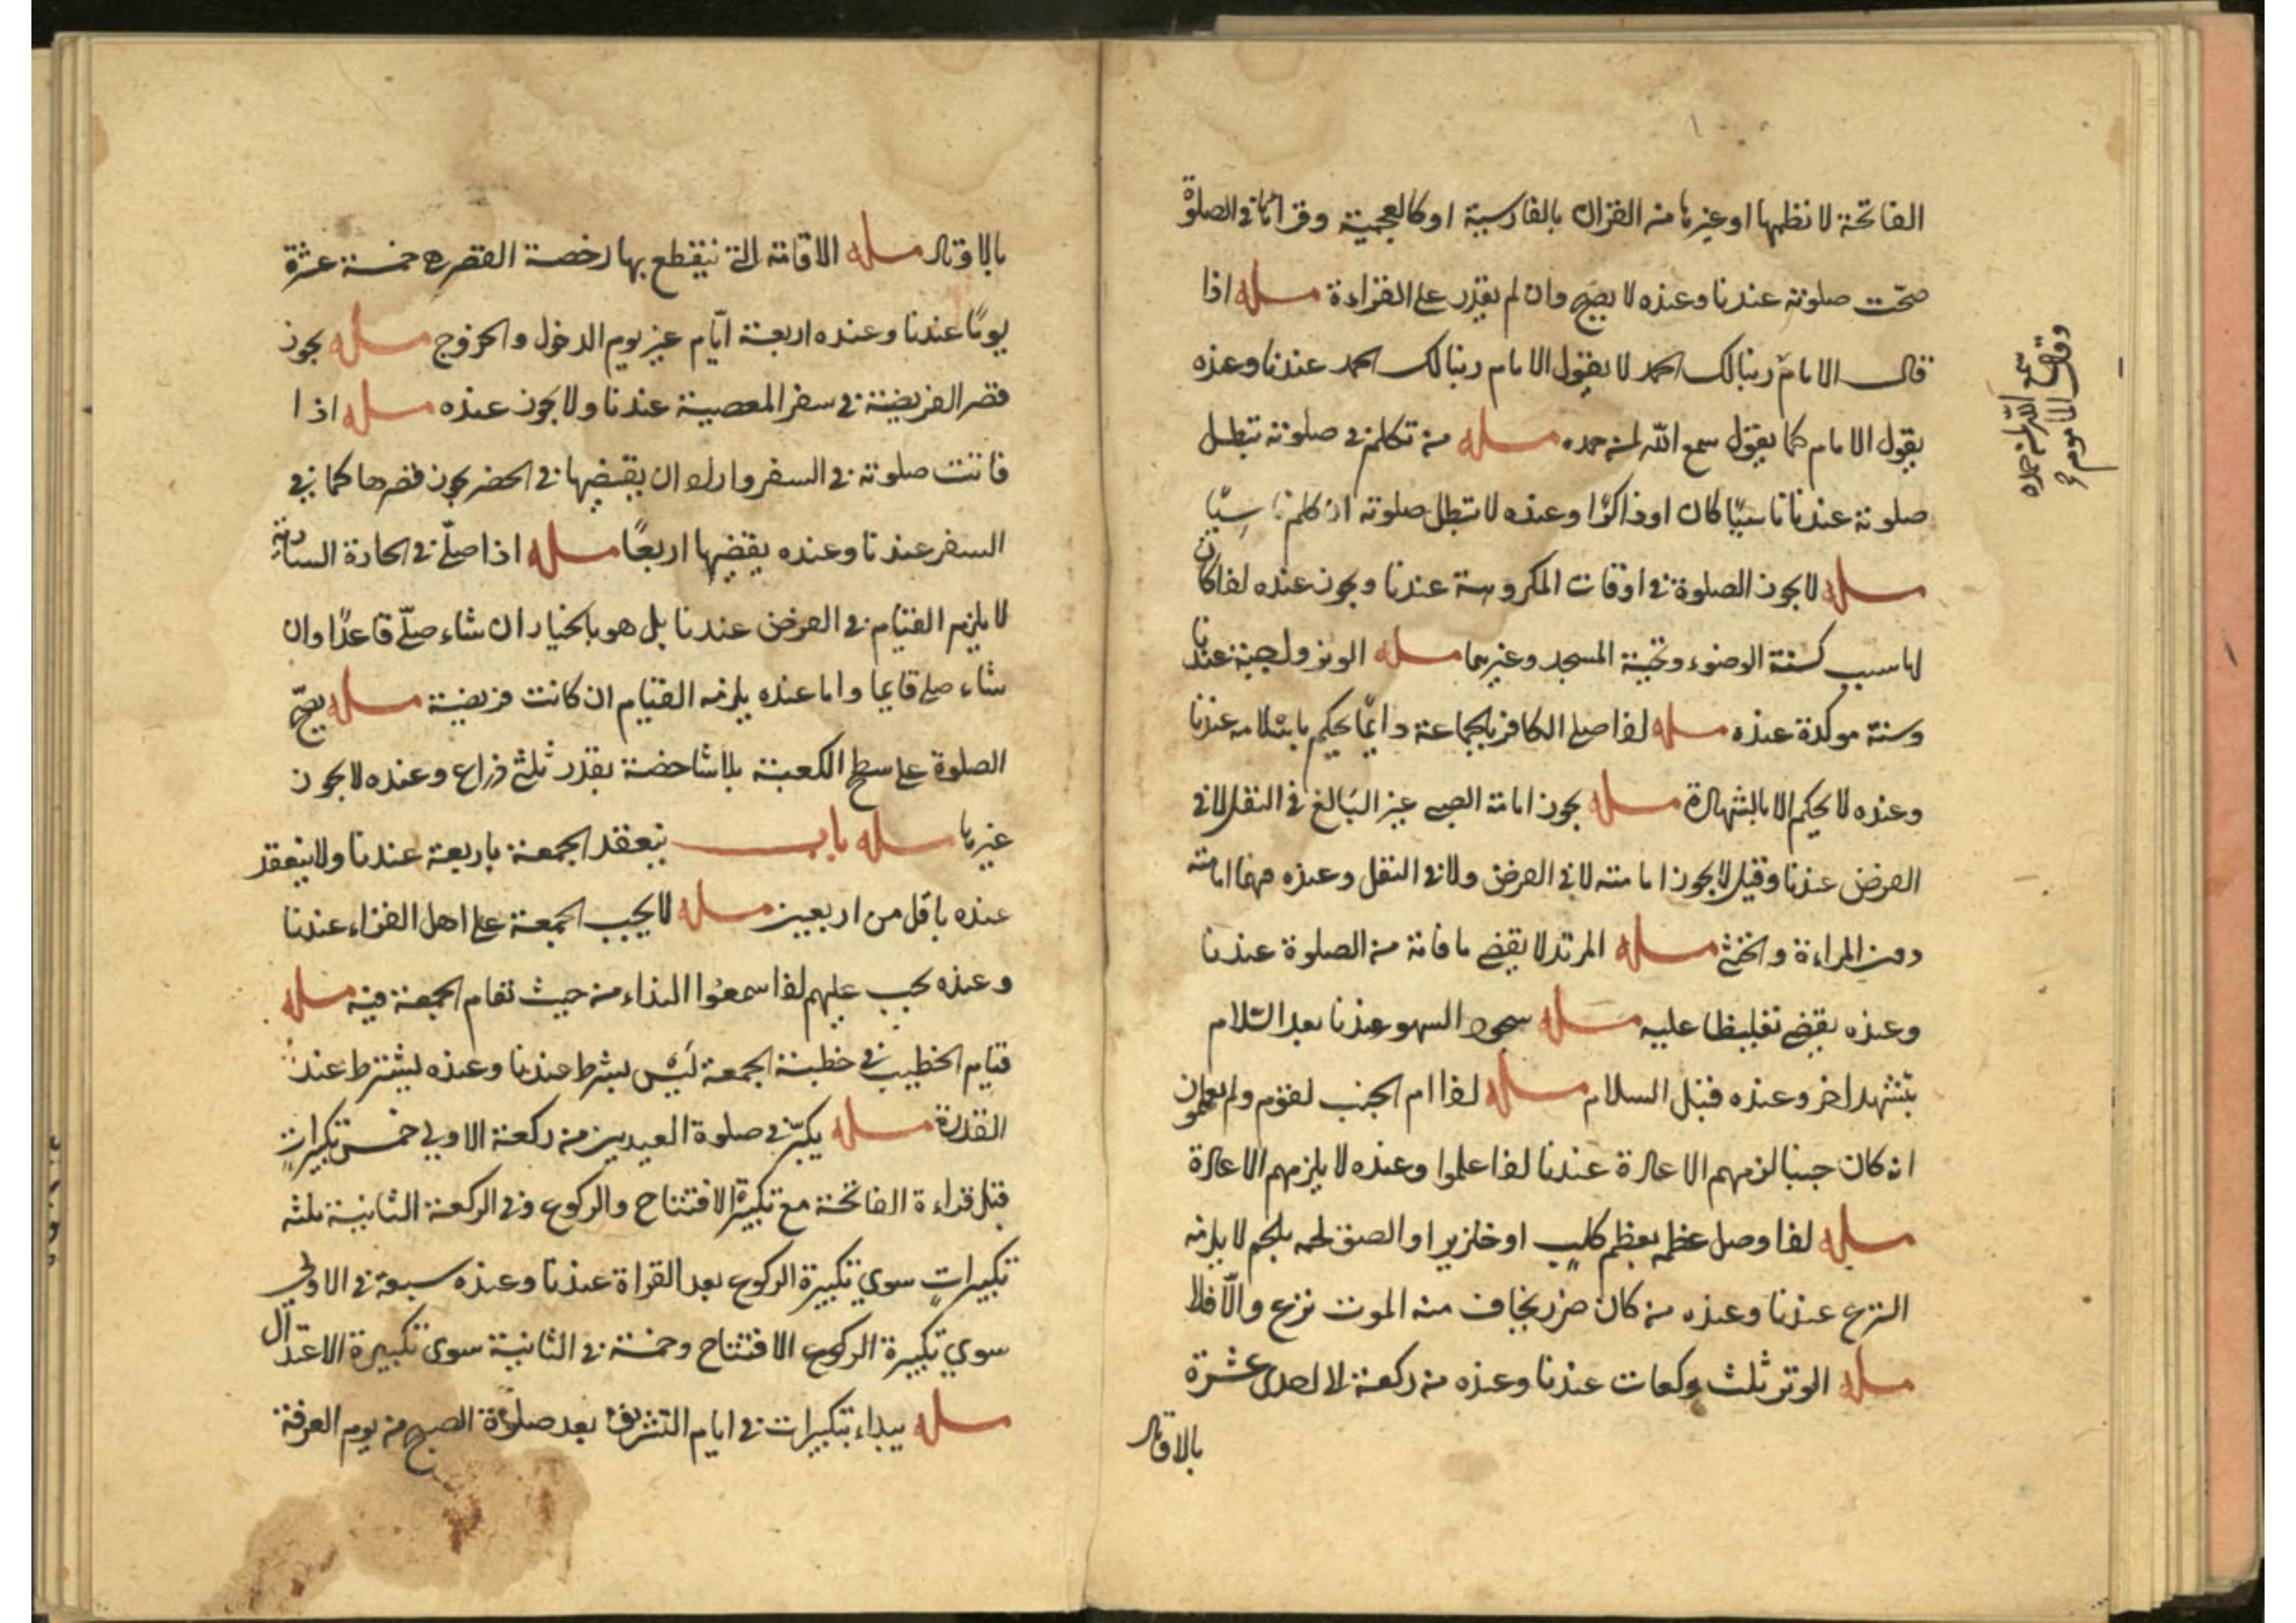 الفاتحة لا نظمها او غيرها من القران بالفارسية او كالعجمية وقراتها في الصلوة
صحّت صلوته عندنا وعنده لا يصح وان لم يقدر على القراءة مسله اذا
قال الامام ربنا لك الحمد لا يقول الامام ربنا لك الحمد عندنا وعنده
يقول الامام كما يقول سمع الله لمن حمده مسله من تكلم في صلوته تبطل
صلوته عندنا ناسيًا كان او ذاكرًا وعنده لا تبطل صلوته ان كلم ناسيًا
مسله لا يجوز الصلوة في اوقات المكروهة عندنا ويجوز عنده اذا كان
لها سبب كسنة الوضوء وتحية المسجد وغيرهما مسله الوتر واجبة عندنا
وسنة موكدة عنده مسله اذا صلى الكافر بالجماعة دايمًا يحكم باسلامه عندنا
وعنده لا يحكم الا بالشهادة مسله يجوز امامة الصبي غير البالغ في النفل لا في
الفرض عندنا وقيل لا يجوز امامته لا في الفرض ولا في النفل وعنده امامته
دون المراءة والخنثى مسله المرتد لا يقضي ما فاته من الصلوة عندنا
وعنده يقضي تغليظا عليه مسله سجود السهو عندنا بعد السّلام
بتشهد اخر وعنده قبل السلام مسله اذا ام الجنب لقوم ولم يعلموا
انه كان جنبا لزمهم الاعادة عندنا اذا علموا وعنده لا يلزمهم الاعادة
مسله اذا وصل عظمه بعظم كلب او خنزير او الصق لحمه بلحم لا يلزمه
النزع عندنا وعنده من كان ضرر يخاف منه الموت نزع والّا فلا
مسله الوتر ثلث ركعات عندنا وعنده من ركعة لا احدى عشرة
بالاوتار
وقال المأموم
سمع الله لمن حمده
بالاوتار مسله الاقامة التي ينقطع بها رخصة القصر هي خمسة عشرة
يومًا عندنا وعنده اربعة ايّام غير يوم الدخول والخروج مسله يجوز
قصر الفريضة في سفر المعصية عندنا ولا يجوز عنده مسله اذا
فاتت صلوته في السفر واراد ان يقضيها في الحضر يجوز قصرها كما في
السفر عندنا وعنده يقضيها اربعًا مسله اذا صلّى في
لا يلزم القيام في الفرض عندنا بل هو بالخيار ان شاء صلّى قاعدًا وان
شاء صلى قايما واما عنده يلزمه القيام ان كانت فريضة مسله يصحّ
الصلوة على سطح الكعبة بلا شاخصة بقدر ثلثي ذراع وعنده لا يجوز
غيرها مسله باب ينعقد الجمعة باربعة عندنا ولا ينعقد
عنده باقل من اربعين مسله لا يجب الجمعة على اهل القراء عندنا
وعنده يجب عليهم اذا سمعوا النداء من حيث تقام الجمعة فيه مسله
قيام الخطيب في خطبة الجمعة ليس بشرط عندنا وعنده يشترط عند
القدرة مسله يكبّر في صلوة العيدين من ركعة الاولى خمس تكبيرات
قبل قراءة الفاتحة مع تكبيرة الافتتاح والركوع وفي الركعة الثانية ثلثه
تكبيرات سوى تكبيرة الركوع بعد القراة عندنا وعنده سبعة في الاولى
سوى تكبيرة الركوع الافتتاح وخمسة في الثانية سوى تكبيرة الاعتدال
مسله يبداء بتكبيرات في ايام التشريق بعد صلوة الصبح من يوم العرفة